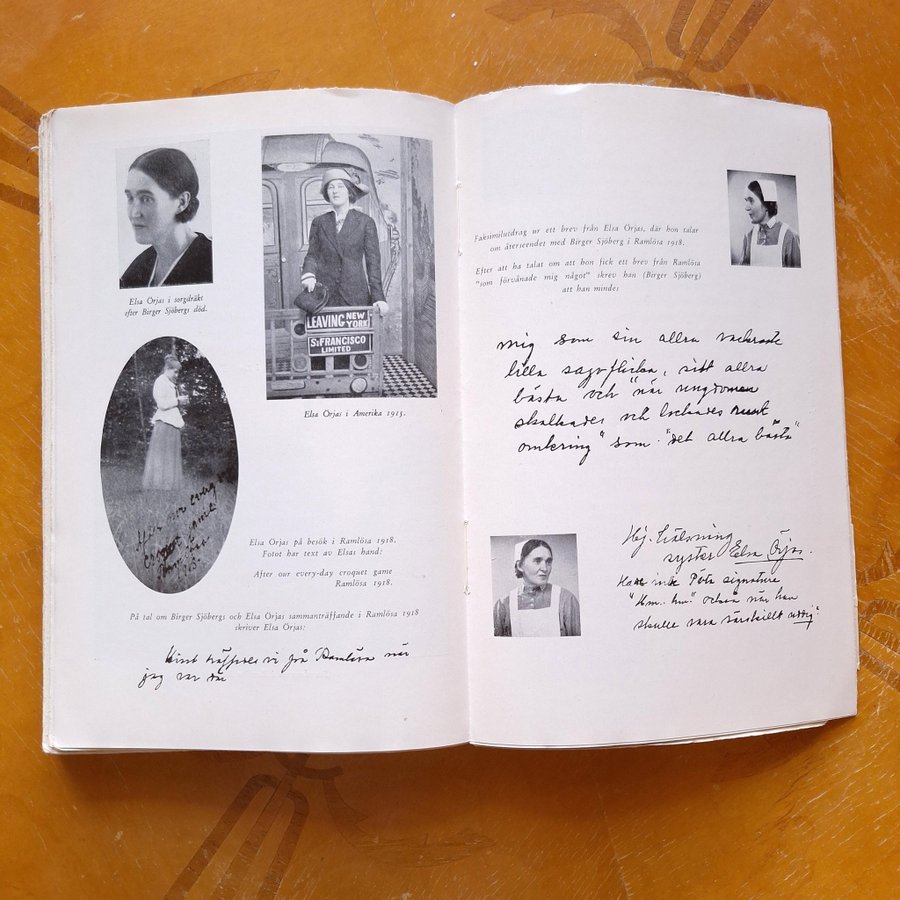 Elsa Örjas i sorgdräkt
efter Birger Sjöbergs död.
LEAVING NEW YORK
S:FRANCISCO
LIMITED
Elsa Örjas i Amerika 1915.
After our every day
croquet game
1918.
Elsa Örjas på besök i Ramlösa 1918.
Fotot har text av Elsas hand:
After our every-day croquet game
Ramlösa 1918.
På tal om Birger Sjöbergs och Elsa Örjas sammanträffande i Ramlösa 1918
skriver Elsa Örjas:
träffades vi från Ramlösa när
jag var där
Faksimilutdrag ur ett brev från Elsa Örjas, där hon talar
om återseendet med Birger Sjöberg i Ramlösa 1918.
Efter att ha talat om att hon fick ett brev från Ramlösa
"som förvånade mig något" skrev han (Birger Sjöberg)
att han mindes
mig som sin allra vackraste
lilla sagoflicka, sitt allra
bästa och "när ungdomen
skattades och lockades runt
omkring" som "det allra bästa"
Hej. Hälsning
syster Elsa Örjas.
inte signatur
"Hm. hm." också när han
skulle vara särskillt uddig".